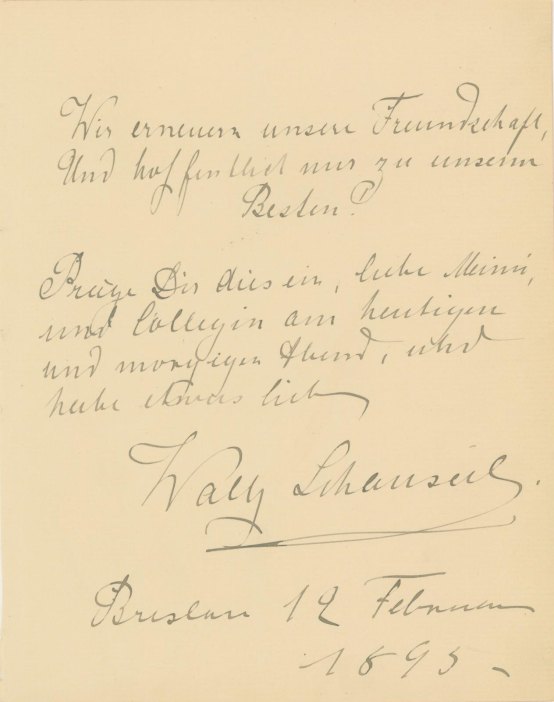 Wir erneuern unsere Freundschaft,
Und hoffentlich nur zu unserm
Besten!
Präge Dir dies ein, liebe Meimi,
und Collegin am heutigen
und morgigen Abend, und
habe etwas lieb
Wally Schauseil.
Breslau 12 Februar
1895